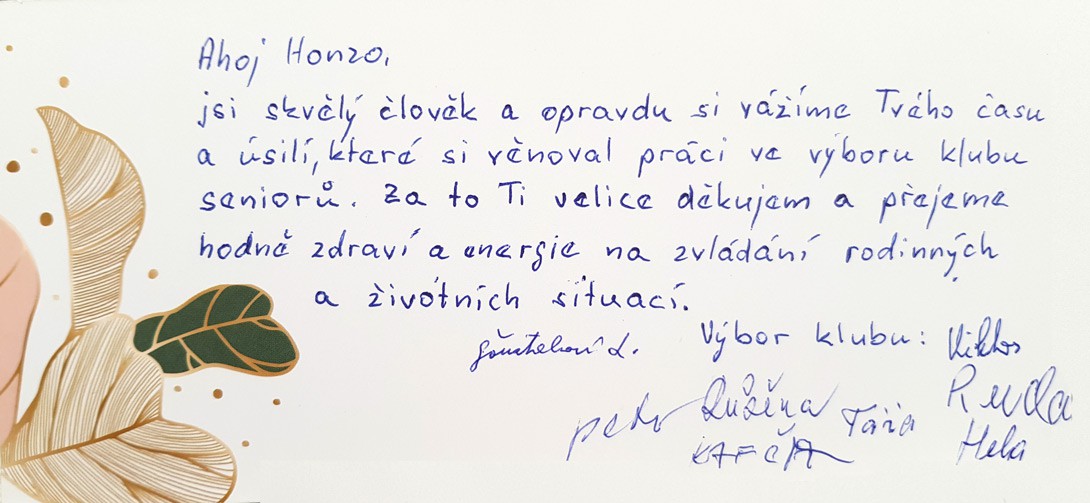 Ahoj Honzo,
jsi skvělý člověk a opravdu si vážíme Tvého času
a úsilí, které si věnoval práci ve výboru klubu
seniorů. Za to Ti velice děkujem a přejeme
hodně zdraví a energie na zvládání rodinných
a životních situací.
Výbor klubu: Viktor
L.
Petr Růžena Táňa Ruda
KAFČA Hela